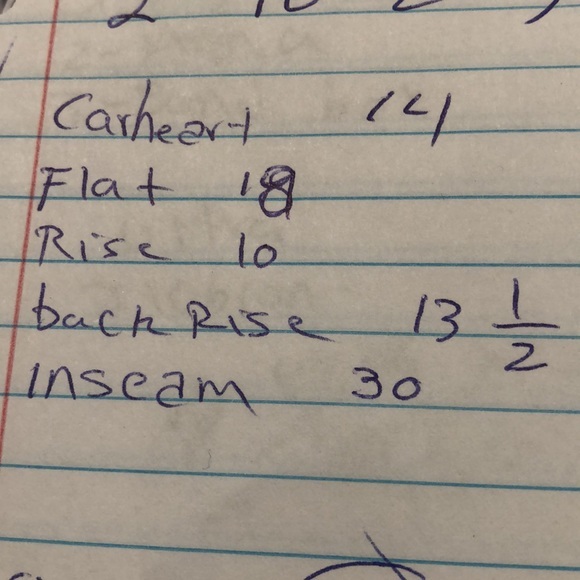 Carheart 14
Flat 18
Rise 10
back Rise 13 1/2
Inseam 30